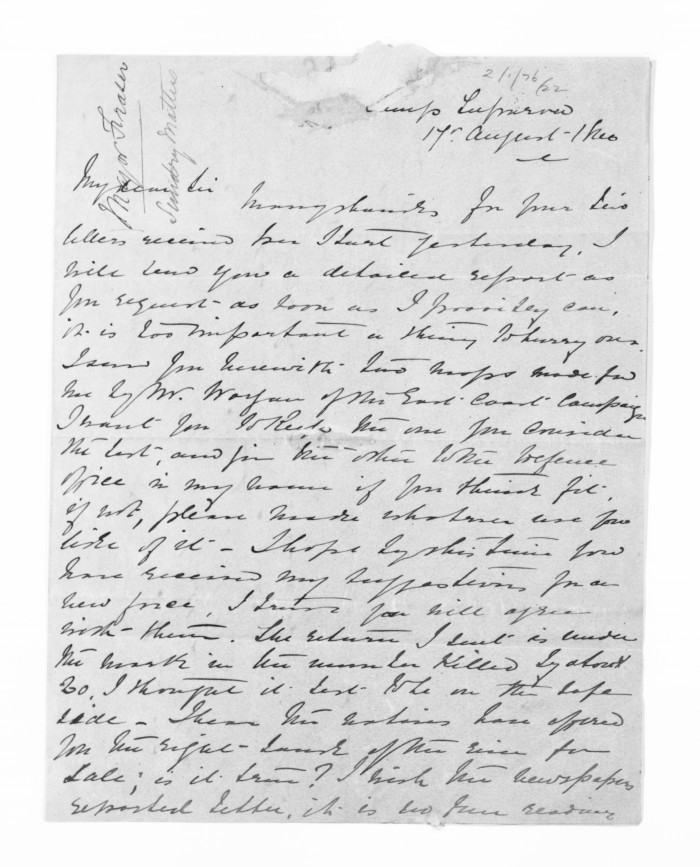 Major Fraser
Sundry Matters
2/1/76/22
Camp
17th August 1860
My dear Sir
Many thanks for your two
letters received here I start yesterday, I
will send you a detailed report as
you request as soon as I possibly can,
it is too important a thing to hurry over.
I send you herewith two maps made for
me by Mr. of the East Coast Campaign
I want you to keep the one you consider
the best, and give the other to the Defence
office in my name if you think fit,
if not, please make whatever use you
like of it - I hope by this time you
have received my suggestions for a
new force, I trust you will agree
with them. The return I sent is under
the mark in the number killed by about
20, I thought it best to be on the safe
side - I hear the natives have offered
you the right bank of the river for
sale; is it true? I wish the newspapers
reported better, it is no fun reading